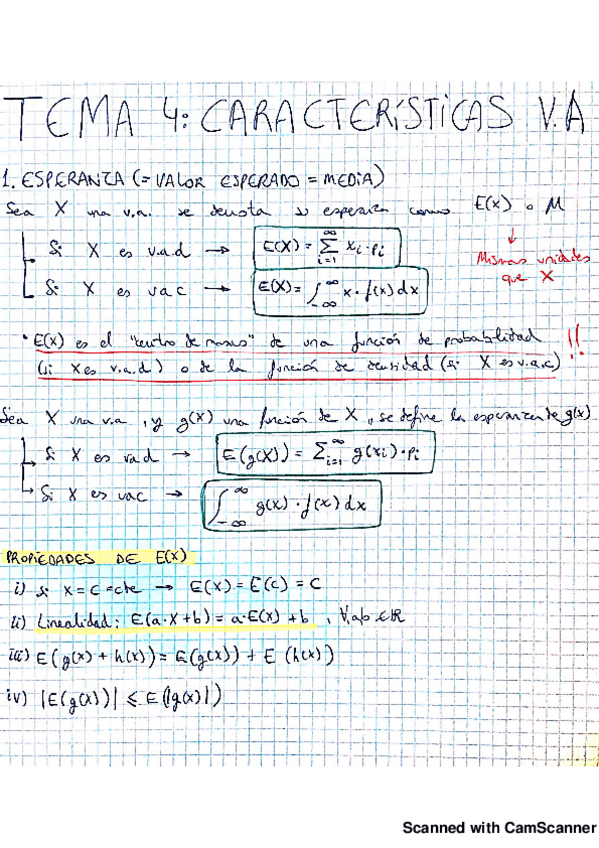 TEMA 4: CARACTERÍSTICAS V.A
1. ESPERANZA (= VALOR ESPERADO = MEDIA)
Sea X una v.a. se denota su esperanza como E(x) o M
Si X es v.a.d → E(X) = ∑_{i=1}^{∞} xi·pi
Mismas unidades que X
Si X es vac → E(X) = ∫_{-∞}^{∞} x·f(x)dx
• E(x) es el "centro de masas" de una función de probabilidad !!
(si X es v.a.d) o de la función de densidad (si X es v.a.c)
Sea X una v.a, y g(x) una función de X, se define la esperanza de g(x)
Si X es vad → E(g(x)) = ∑_{i=1}^{∞} g(xi)·pi
Si X es vac → ∫_{-∞}^{∞} g(x)·f(x)dx
PROPIEDADES DE E(X)
i) si x=c=cte → E(x)=E(c)=c
ii) Linealidad: E(a·X+b)=a·E(x)+b, ∀a,b∈ℝ
iii) E(g(x)+h(x))=E(g(x))+E(h(x))
iv) |E(g(x))| ≤ E(|g(x)|)
Scanned with CamScanner